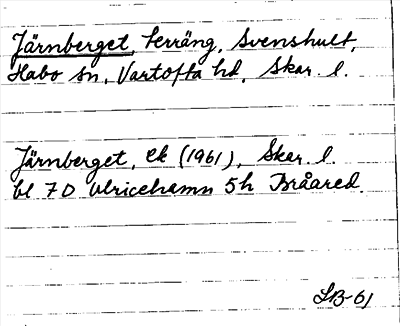 Järnberget, terräng, Svenshult,
Habo sn, Vartofta hd, Skar. l.
Järnberget, ek (1961), Skar. l.
bl 7D Ulricehamn 5h Bråared.
SB-61